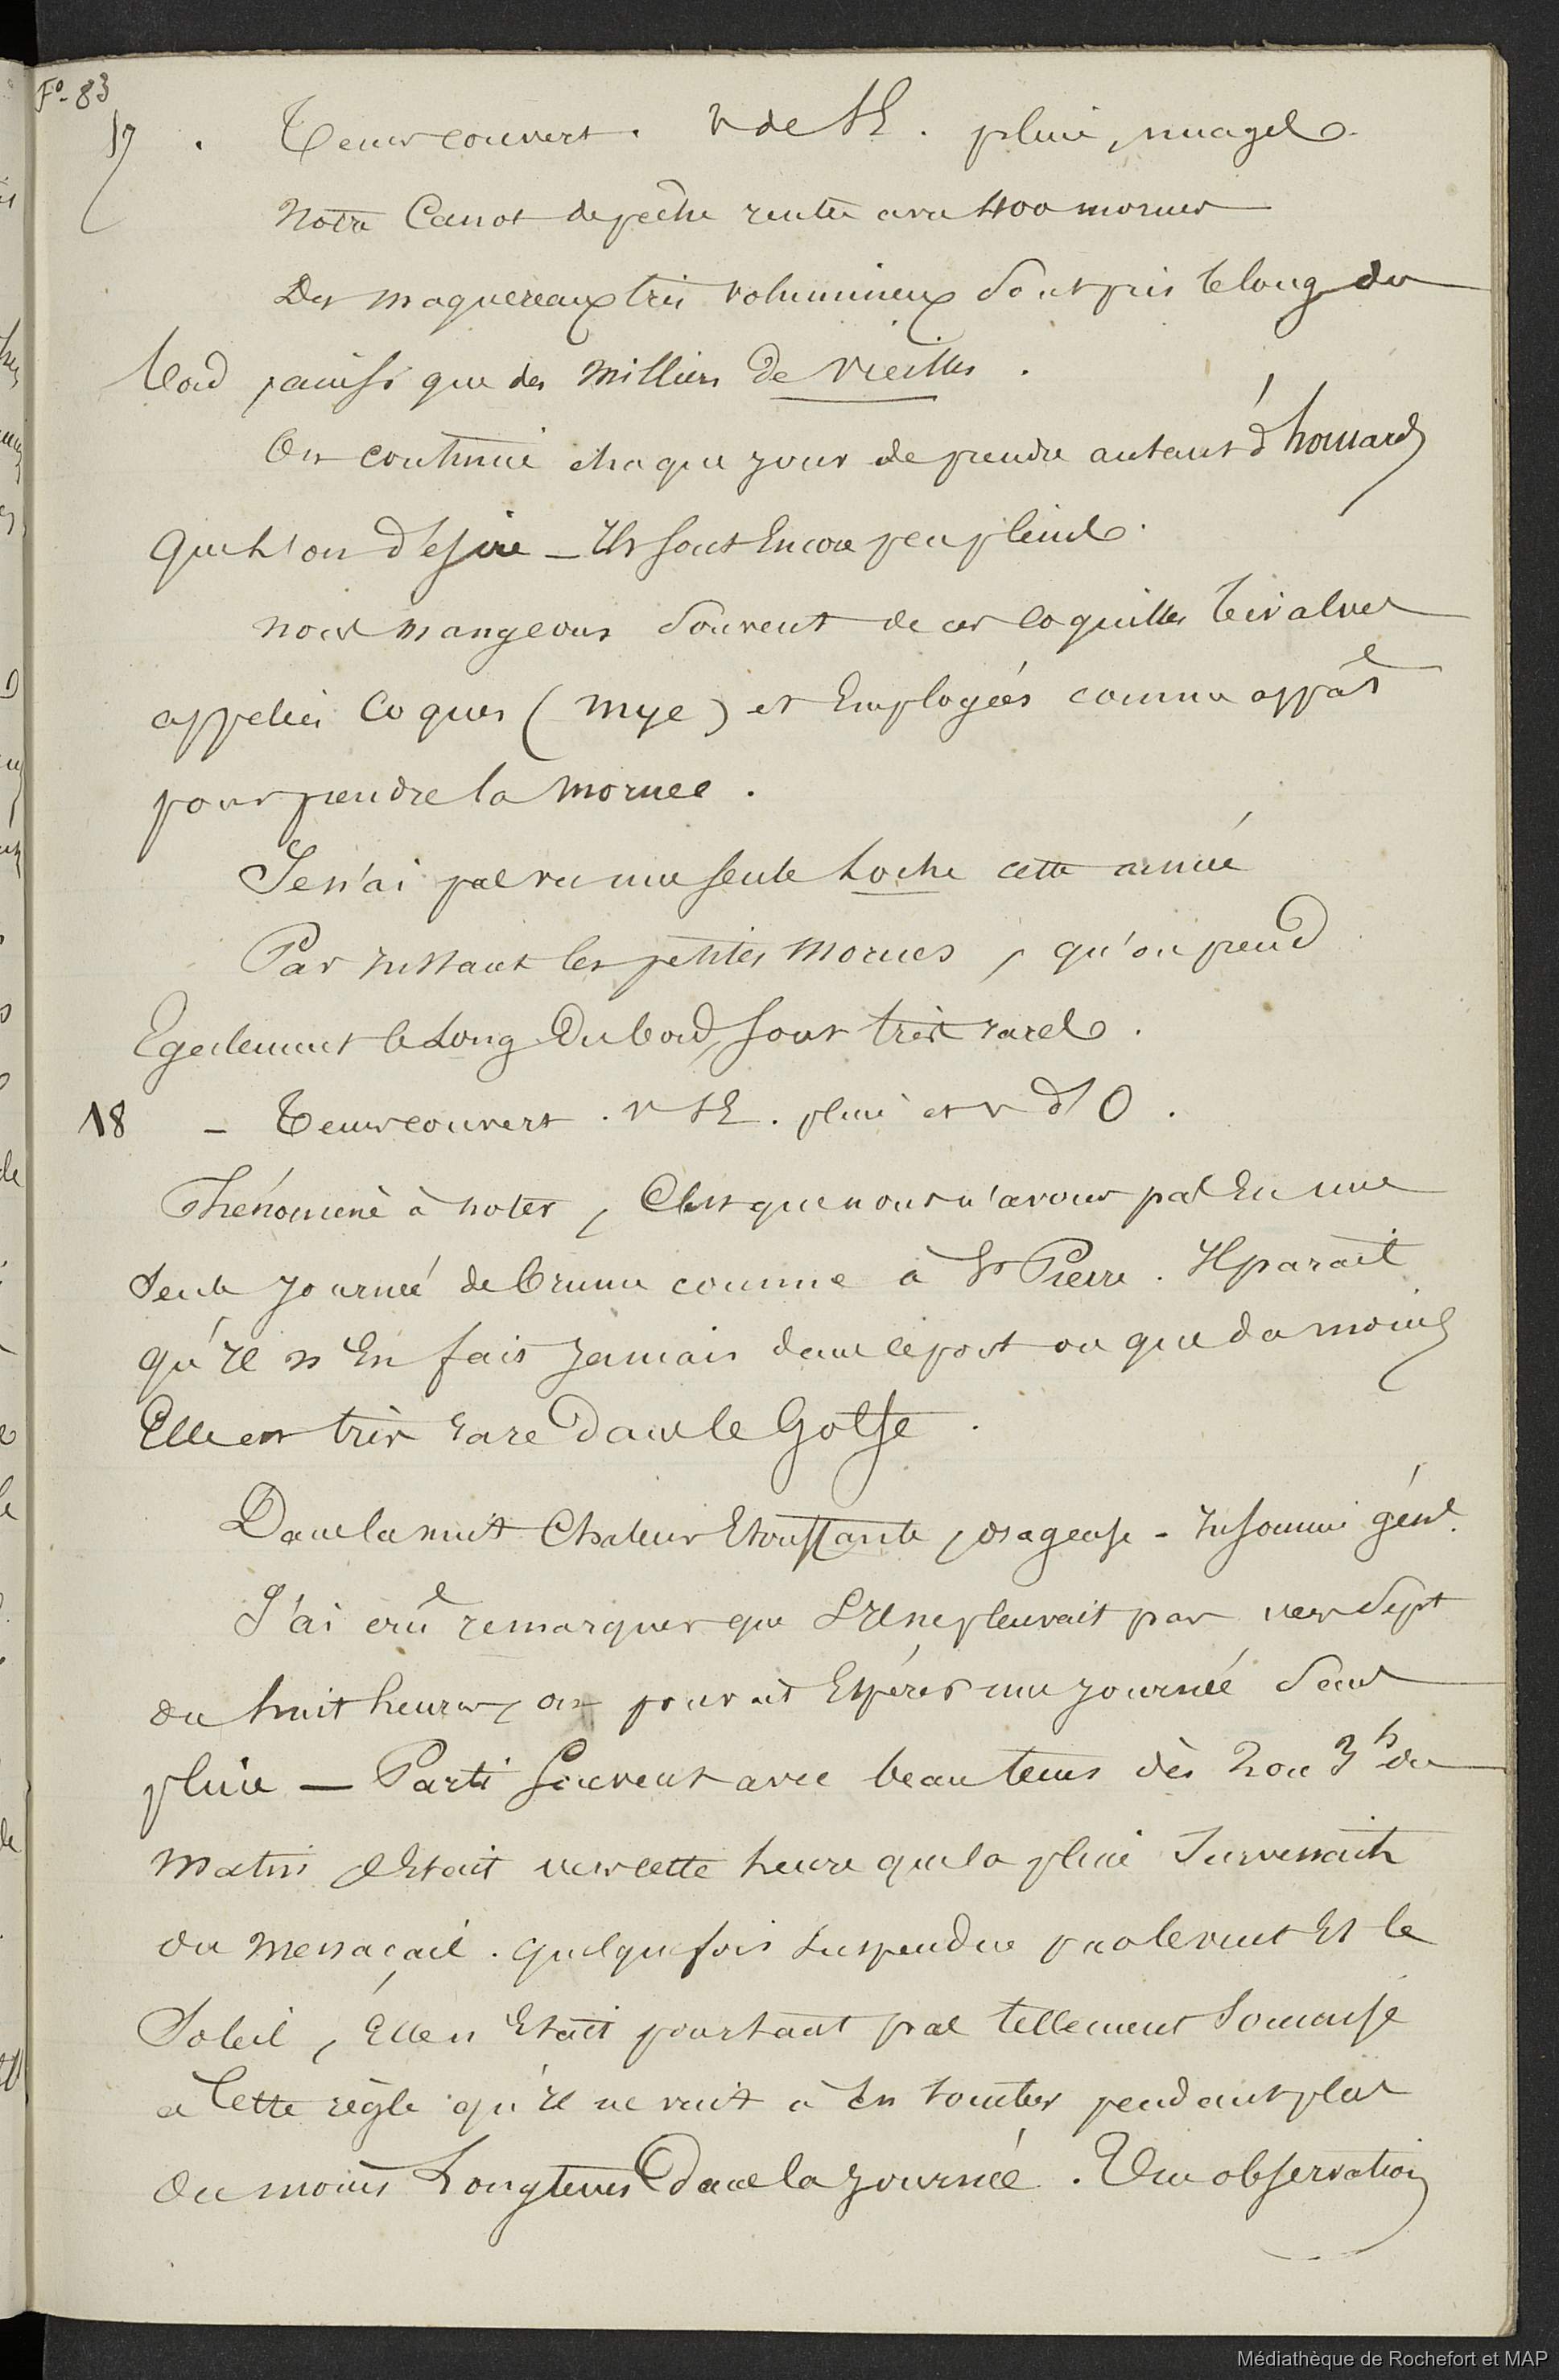 F°. 83
17. Tems couvert. V de SE. pluie, nuages.
Notre Canot de pêche rentre avec 400 morues
Des maquereaux très volumineux sont pris le long du
bord, ainsi que des milliers de Vieilles.
On continue chaque jour de prendre autant d'homards
que l'on désire — Ils sont Encore peu pleins.
nous mangeons souvent de ces coquilles bivalves
appelées Coques (mye) et Employées comme appât
pour prendre la morue.
Je n'ai pas vu une seule Loche cette année
Par instant les petites morues, qu'on prend
Egalement le Long du bord, sont très rares.
18 — Tems couvert. v SE. pluie et v d'O.
Phénomène à noter, C'est que nous n'avons pas Eu une
seule journée de brume comme à St Pierre. Il parait
qu'il n'En fait jamais dans ce port ou que du moins
Elle est très rare Dans le Golfe.
Dans la nuit Chaleur Etouffante, orageuse - Insomnie génle.
J'ai crû remarquer que S'il ne pleuvait pas vers Sept
ou huit heures, on pouvait Espérer une journée sans
pluie — Parti souvent avec beau tems dès 2 ou 3h du
matin, c'Etait vers cette heure que la pluie survenait
ou menaçait. quelquefois suspendue par le vent Et le
Soleil, Elle n'Etait pourtant pas tellement soumise
à Cette règle qu'il ne vint à En tomber pendant plus
ou moins Longtems Dans la journée. Une observation
Médiathèque de Rochefort et MAP